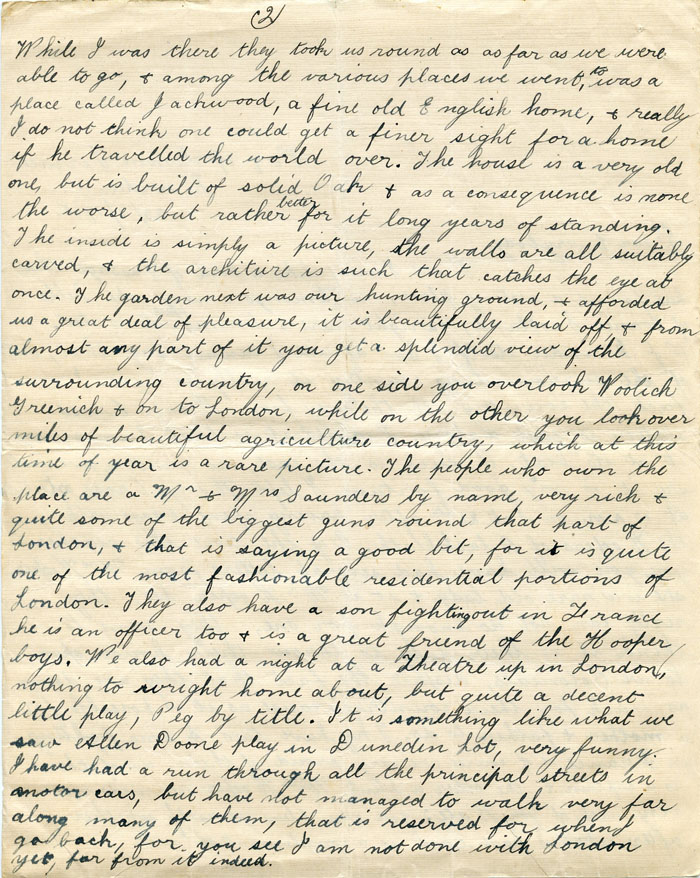 (2)
While I was there they took us round as as far as we were
able to go, & among the various places we went, to was a
place called Jackwood, a fine old English home, & really
I do not think one could get a finer sight for a home
if he travelled the world over. The house is a very old
one, but is built of solid Oak & as a consequence is none
the worse, but rather better for it long years of standing.
The inside is simply a picture, the walls are all suitably
carved, & the architure is such that catches the eye at
once. The garden next was our hunting ground, & afforded
us a great deal of pleasure, it is beautifully laid off & from
almost any part of it you get a splendid view of the
surrounding country, on one side you overlook Woolich
Greenich & on to London, while on the other you look over
miles of beautiful agriculture country, which at this
time of year is a rare picture. The people who own the
place are a Mr & Mrs Saunders by name, very rich &
quite some of the biggest guns round that part of
London, & that is saying a good bit, for it is quite
one of the most fashionable residential portions of
London. They also have a son fighting out in France
he is an officer too & is a great friend of the Hooper
boys. We also had a night at a Theatre up in London,
nothing to wright home about, but quite a decent
little play, Peg by title. It is something like what we
saw Allen Doone play in Dunedin lot, very funny.
I have had a run through all the principal streets in
motor cars, but have not managed to walk very far
along many of them, that is reserved for when I
go back, for you see I am not done with London
yet, far from it indeed.